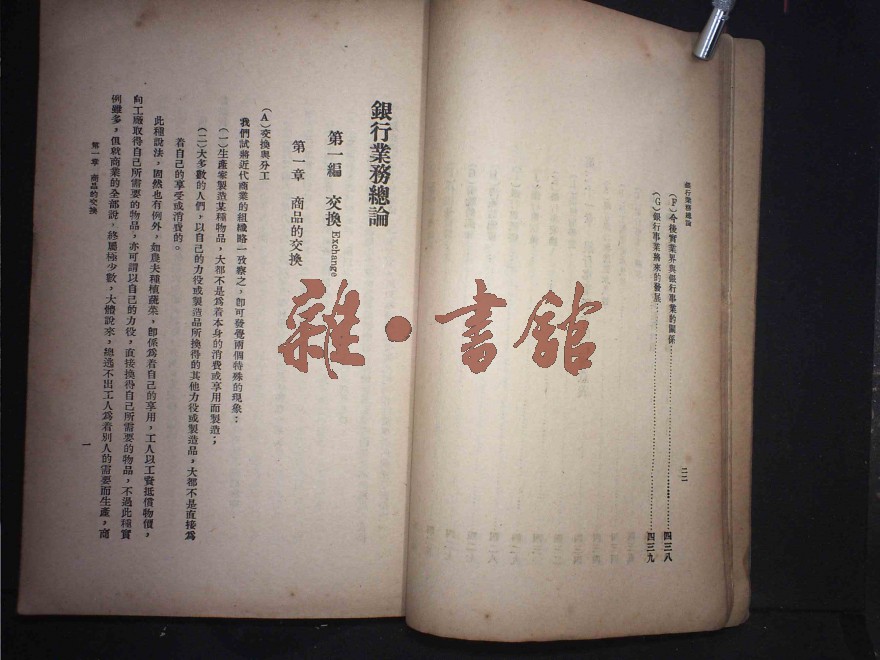 銀行業務總論
(F)今後實業界與銀行事業的關係…………四三八
(G)銀行事業將來的發展…………四三九
二二
銀行業務總論
第一編 交換 Exchange
第一章 商品的交換
(A)交換與分工
我們試將近代商業的組織略一攷察之,卽可發覺兩個特殊的現象:
(一)生產家製造某種物品,大都不是爲着本身的消費或享用而製造;
(二)大多數的人們,以自己的力役或製造品所換得的其他力役或製造品,大都不是直接爲
着自己的享受或消費的。
此種說法,固然也有例外,如農夫種植蔬菜,卽係爲着自己的享用,工人以工資抵償物價,
向工廠取得自己所需要的物品,亦可謂以自己的力役,直接換得自己所需要的物品,不過此種實
例雖多,但就商業的全部說,終屬極少數,大體說來,總逃不出工人爲着別人的需要而生產,商
第一章 商品的交換
一
雜·書館